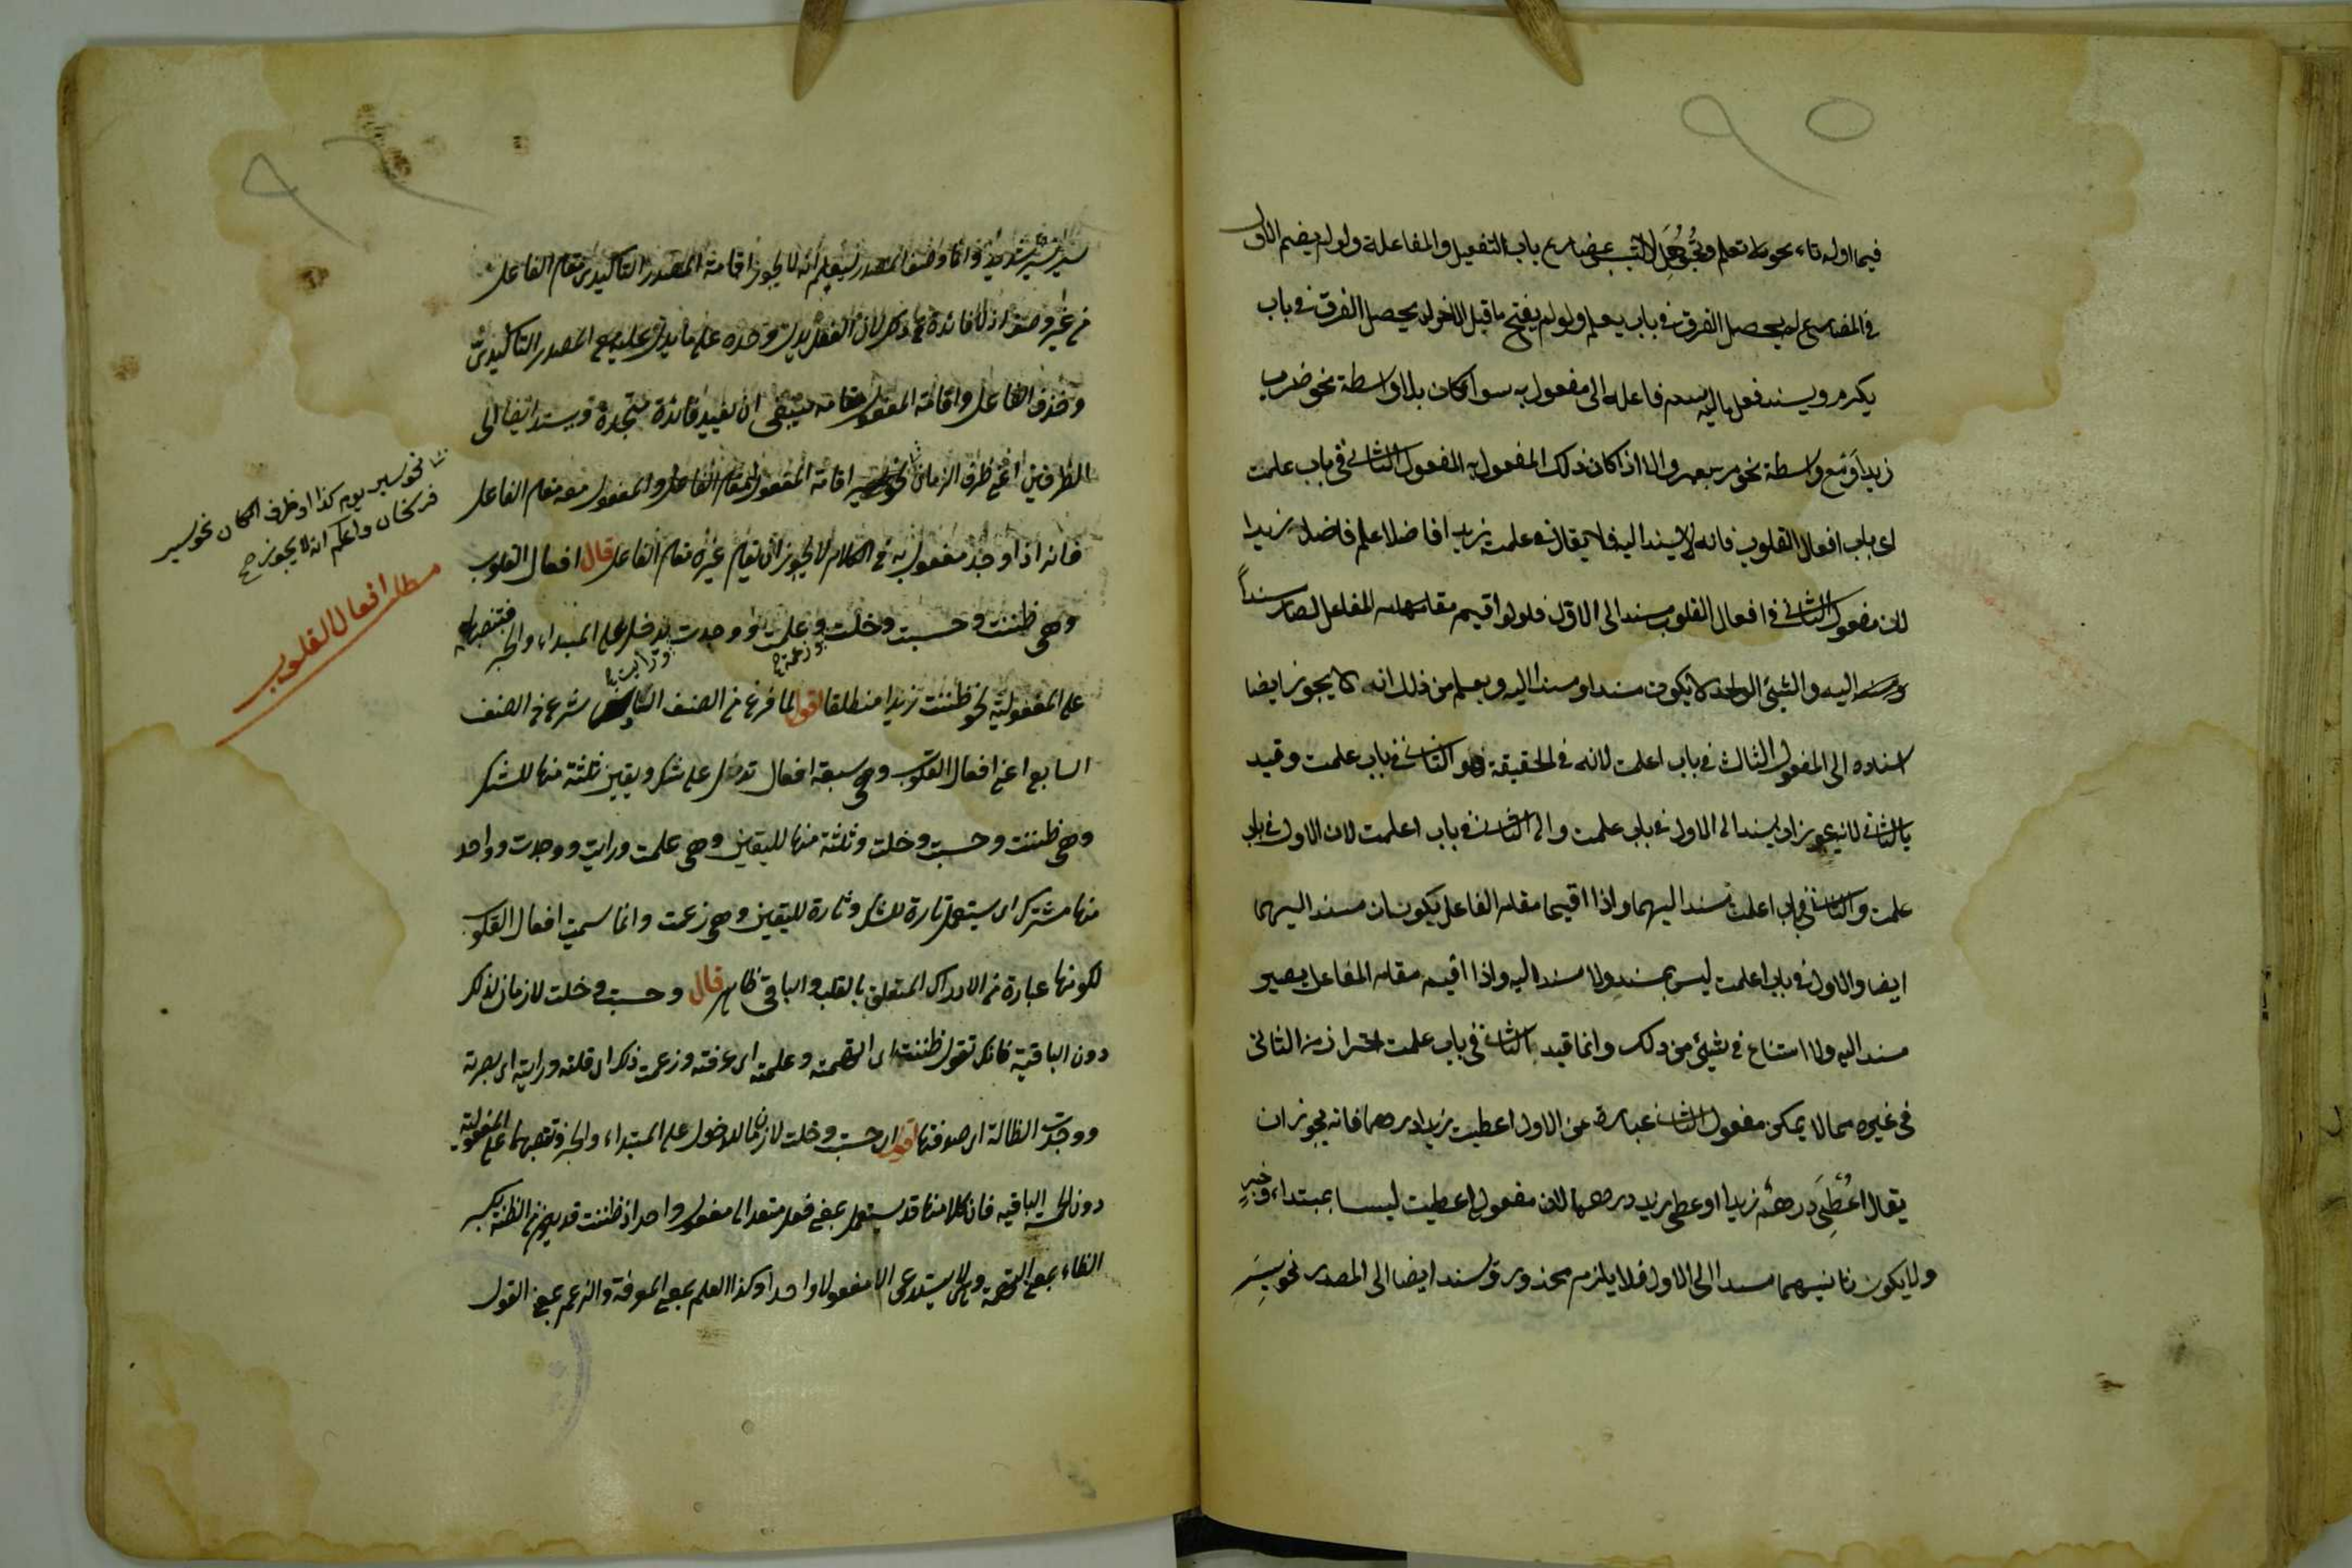 ٩٥
فيما اوله تاء نحو تعلم وتجوهل لالتبس بمضارع باب التفعيل والمفاعلة ولو لم يضم الاول
في المضارع لم يحصل الفرق في باب يعلم ولو لم يفتح ما قبل الاخر لم يحصل الفرق في باب
يكرم ويسند فعل ما لم يسم فاعله الى مفعول به سواء كان بلا واسطة نحو ضرب
زيد او مع واسطة نحو مر بعمرو الا اذا كان ذلك المفعول به المفعول الثاني في باب علمت
اى باب افعال القلوب فانه لا يسند اليه فلا يقال في علمت زيدا فاضلا علم فاضل زيدا
لان مفعول الثاني في افعال القلوب مسند الى الاول فلو اقيم مقام الفاعل لصار مسنداً
ومسند اليه والشيئ الواحد لا يكون مسندا ومسندا اليه ويعلم من ذلك انه لا يجوز ايضا
اسناده الى المفعول الثالث في باب اعلمت لانه في الحقيقة هو الثاني في باب علمت وقيد
بالثاني لانه يجوز ان يسند الى الاول في باب علمت والى الثاني في باب اعلمت لان الاول في باب
علمت والثاني في باب اعلمت مسند اليهما واذا اقيما مقام الفاعل يكونان مسند اليهما
ايضا والاول في باب اعلمت ليس بمسند ولا مسند اليه واذا اقيم مقام الفاعل يصير
مسند اليه ولا امتناع في شيئ من ذلك وانما قيد بالثاني في باب علمت احترازا من الثاني
في غيره مما لا يمكن مفعول الثاني عبارة عن الاول اعطيت زيدا درهما فانه يجوز ان
يقال اُعْطِيَ درهمٌ زيدا او اعطى زيد درهما لان مفعولى اعطيت ليسا بمبتداء وخبرٍ
ولا يكون ثانيهما مسندا الى الاول فلا يلزم محذور ويسند ايضا الى المصدر نحو سِيرَ
٩٦
سير شديد وانما وصف المصدر ليعلم انه لا يجوز اقامة المصدر التاكيدى مقام الفاعل
من غير وصف اذ لا فائدة في ذكره لان الفعل يدل وحده على ما يدل عليه مع المصدر التاكيدى
وحذف الفاعل واقامة المفعول مقامه ينبغى ان يفيد فائدة متجددة ويسند ايضا الى
الظرفين اعني ظرف الزمان اقامة المفعول له مقام الفاعل والمفعول معه مقام الفاعل
نحو سير يوم كذا او ظرف المكان نحو سير
فرسخان واعلم انه لا يجوز صح
فانه اذا وجد مفعول به في الكلام لا يجوز ان يقام غيره مقام الفاعل قال افعال القلوب
مطلب افعال القلوب
وهى ظننت وحسبت وخلت وزعمت وعلمت ورايت ووجدت يدخل على المبتداء والخبر فتنصبهما
على المفعولية نحو ظننت زيدا منطلقا اقول لما فرغ من الصنف السادس شرع في الصنف
السابع اعنى افعال القلوب وهى سبعة افعال تدخل على شك ويقين ثلثة منها للشك
وهى ظننت وحسبت وخلت وثلثة منها لليقين وهى علمت ورايت ووجدت وواحد
منها مشترك اى يستعمل تارة للشك وتارة لليقين وهى زعمت وانما سميت افعال القلوب
لكونها عبارة من الادراك المتعلق بالقلب والباقى ظاهر قال وحسبت وخلت لازمان لذلك
دون الباقية فانك تقول ظننته اى اتهمته وعلمته اى عرفته وزعمت ذلك اى قلته ورايته اى بصرته
ووجدت الضالة اى صدفتها اقول ان حسبت وخلت لازمان للدخول على المبتداء والخبر وتنصبهما على المفعولية
دون الباقيه فان كلا منها قد يستعمل بمعنى فعل متعد الى مفعول واحد اذ ظننت قد يجئ من الظنة بكسر
الظاء بمعنى التهمة وهى لا يستدعى الا مفعولا واحدا وكذا العلم بمعنى المعرفة والزعم بمعنى القول